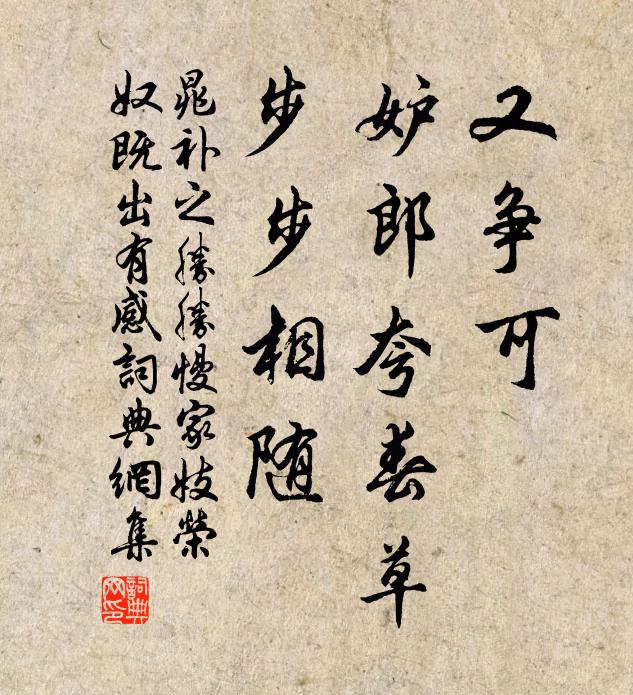 又争可
妒郎夸春草
步步相随
晁补之勝勝慢家妓榮
奴既出有感詞典網集
詞典網印